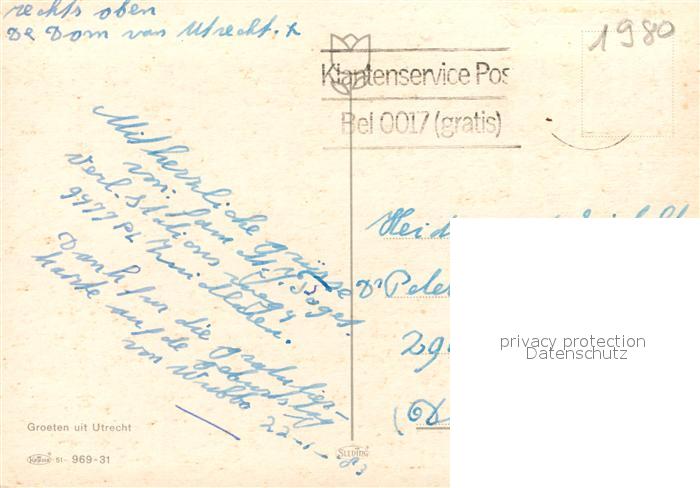 rechts oben
De Dom van Utrecht.
1980
Klantenservice Pos
Bel 0017 (gratis)
Mit herzliche grüsse
von fam
Verl. Stationsweg 4
9477 PL Zuidlaren.
Dank für die gratulier-
karte auf de geburtstag
von Wubbo
22-1-83
Heid
Dr Pete
290
(D
privacy protection
Datenschutz
Groeten uit Utrecht
51- 969-31